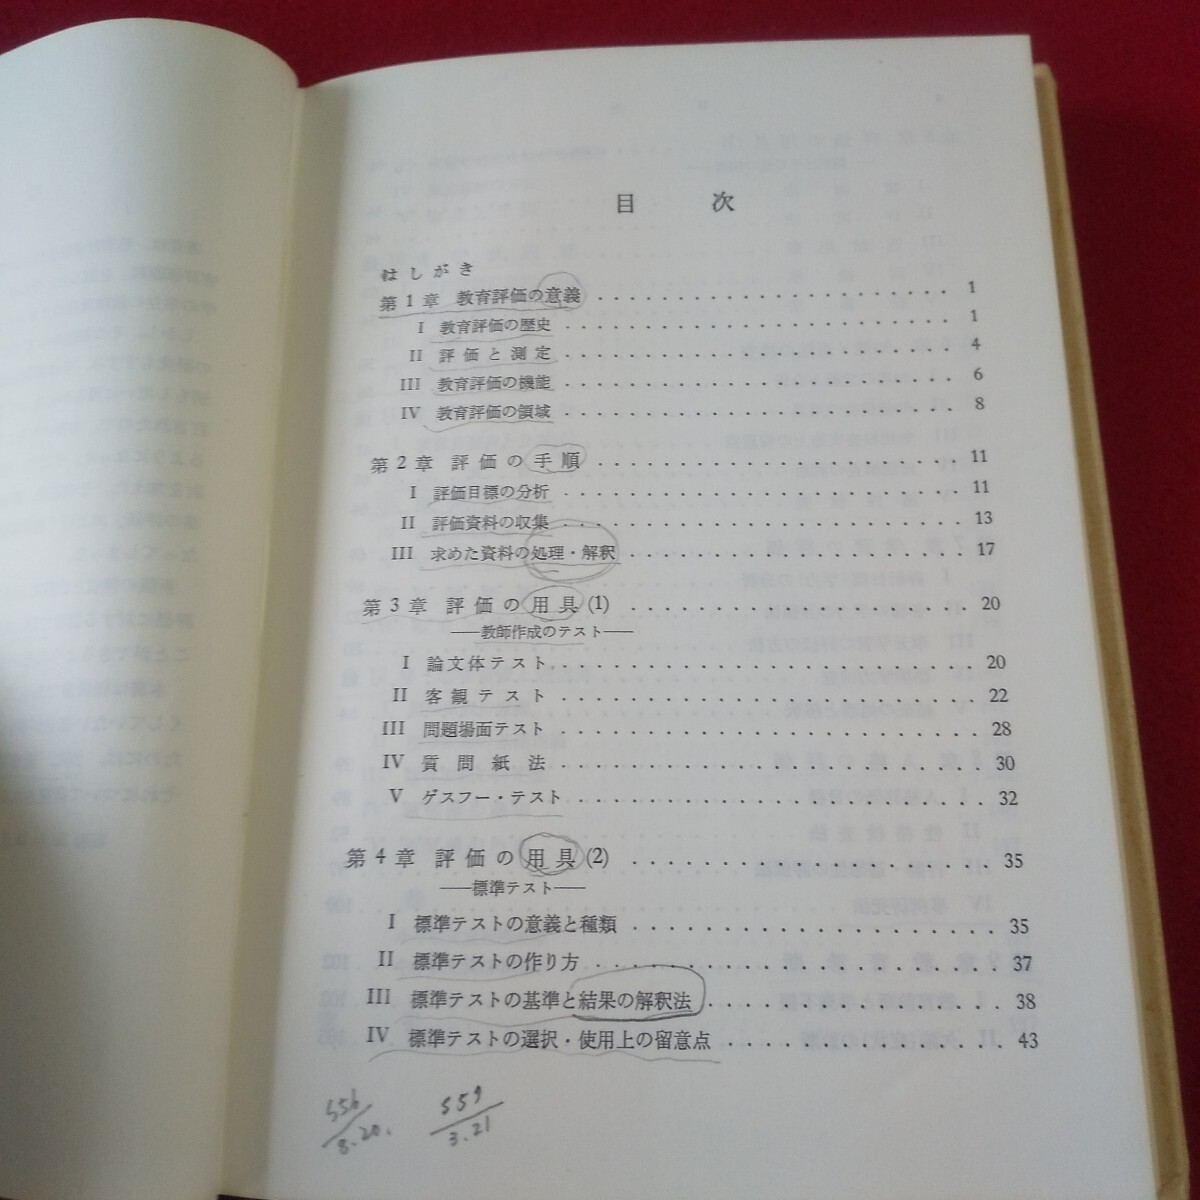 目 次
はしがき
第1章 教育評価の意義 1
I 教育評価の歴史 1
II 評価と測定 4
III 教育評価の機能 6
IV 教育評価の領域 8
第2章 評価の手順 11
I 評価目標の分析 11
II 評価資料の収集 13
III 求めた資料の処理・解釈 17
第3章 評価の用具(1) 20
——教師作成のテスト——
I 論文体テスト 20
II 客観テスト 22
III 問題場面テスト 28
IV 質問紙法 30
V ゲスフー・テスト 32
第4章 評価の用具(2) 35
——標準テスト——
I 標準テストの意義と種類 35
II 標準テストの作り方 37
III 標準テストの基準と結果の解釈法 38
IV 標準テストの選択・使用上の留意点 43
S56/8.20. S59/3.21